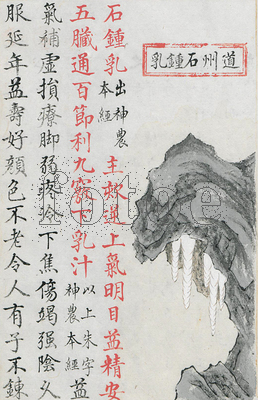 道州石鍾乳
石鍾乳出神農本經主欬逆上氣明目益精安
五臟通百節利九竅下乳汁以上朱字神農本經益
氣補虛損療脚弱疼冷下焦傷竭强陰久
服延年益壽好顔色不老令人有子不鍊
fotoe